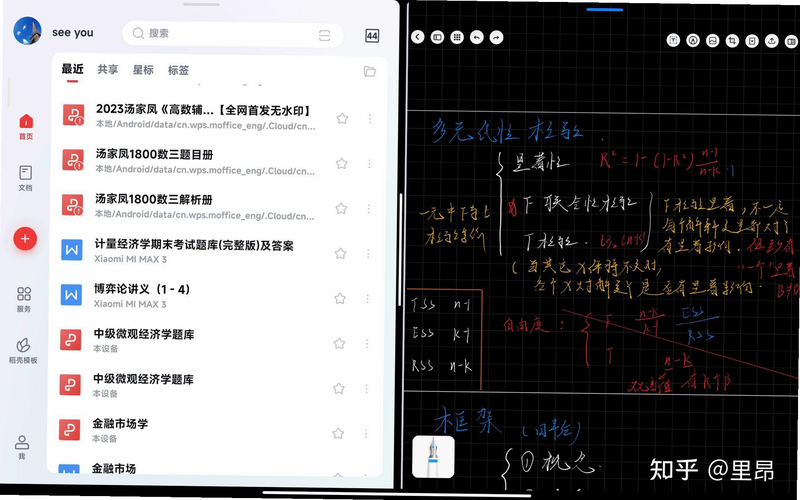 see you
搜索
44
最近 共享 星标 标签
首页
文档
服务
稻壳模板
我
2023汤家凤《高数辅...【全网首发无水印】
本地/Android/data/cn.wps.moffice_eng/.Cloud/cn...
汤家凤1800数三题目册
本地/Android/data/cn.wps.moffice_eng/.Cloud/cn...
汤家凤1800数三解析册
本地/Android/data/cn.wps.moffice_eng/.Cloud/cn...
计量经济学期末考试题库(完整版)及答案
Xiaomi MI MAX 3
博弈论讲义（1 - 4）
Xiaomi MI MAX 3
中级微观经济学题库
本设备
中级微观经济学题库
本设备
金融市场学
本设备
金融市场
多元线性检验.
显著性 R² = 1 - (1-R²) n-1/n-k
F 联合性检验
T检验.
F检验显著，不一定
每个解释变量都对Y
有显著影响. 但至少有
"一个"显著
(当其它X保持不变时，
各个X对解释Y是否有显著影响.
TSS n-1
ESS k-1
RSS n-k
自由度： F n-k/k-1 ESS/RSS
T n-k
框架
① 概念.
知乎 @里昂